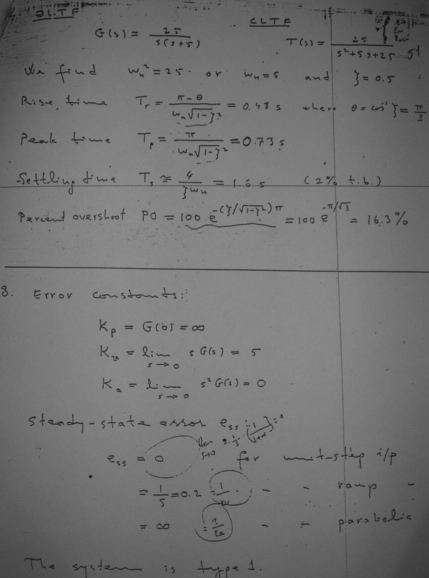 OLTF CLTF
G(s) = 25 / s(s+5) T(s) = 25 / s²+5s+25
We find wn² = 25 or wn = 5 and ζ = 0.5
Rise time Tr = π-θ / wn√1-ζ² = 0.48 s where θ = cos⁻¹ ζ = π/3
Peak time Tp = π / wn√1-ζ² = 0.73 s
Settling time Ts ≈ 4 / ζwn = 1.6 s (2% t.b.)
Percent overshoot PO = 100 e^-(ζ/√1-ζ²)π = 100 e^-π/√3 = 16.3%
8. Error constants:
Kp = G(0) = ∞
Kv = lim s→0 s G(s) = 5
Ka = lim s→0 s² G(s) = 0
Steady-state error ess
ess = 0 for unit-step i/p
= 1/5 = 0.2 = 1/ - - ramp -
= ∞ - - parabolic
The system is type 1.